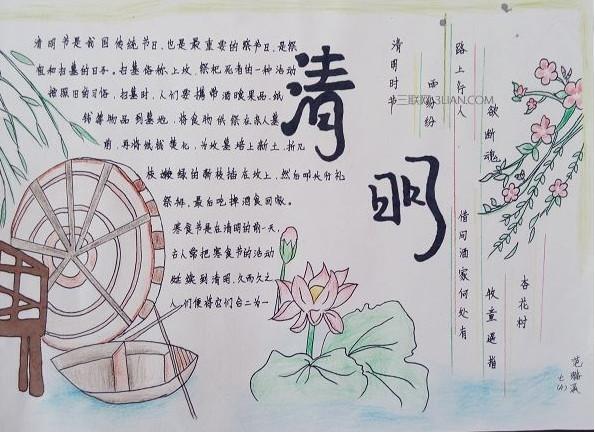 清明节是我国传统节日,也是最重要的祭节日,是祭
祖和扫墓的日子。扫墓俗称上坟,祭祀死者的一种活动
按照旧的习俗,扫墓时,人们要携带酒食果品、纸
钱等物品到墓地,将食物供祭在亲人墓
前,再将纸钱焚化,为坟墓培上新土,折几
枝嫩绿的新枝插在坟上,然后叩头行礼
祭拜,最后吃掉酒食回家。
寒食节是在清明的前一天,
古人常把寒食节的活动
延续到清明,久而久之
人们便将它们合二为一
清明
清明时节
雨纷纷
路上行人
欲断魂
借问酒家何处有
牧童遥指
杏花村
三联网3LIAN.COM